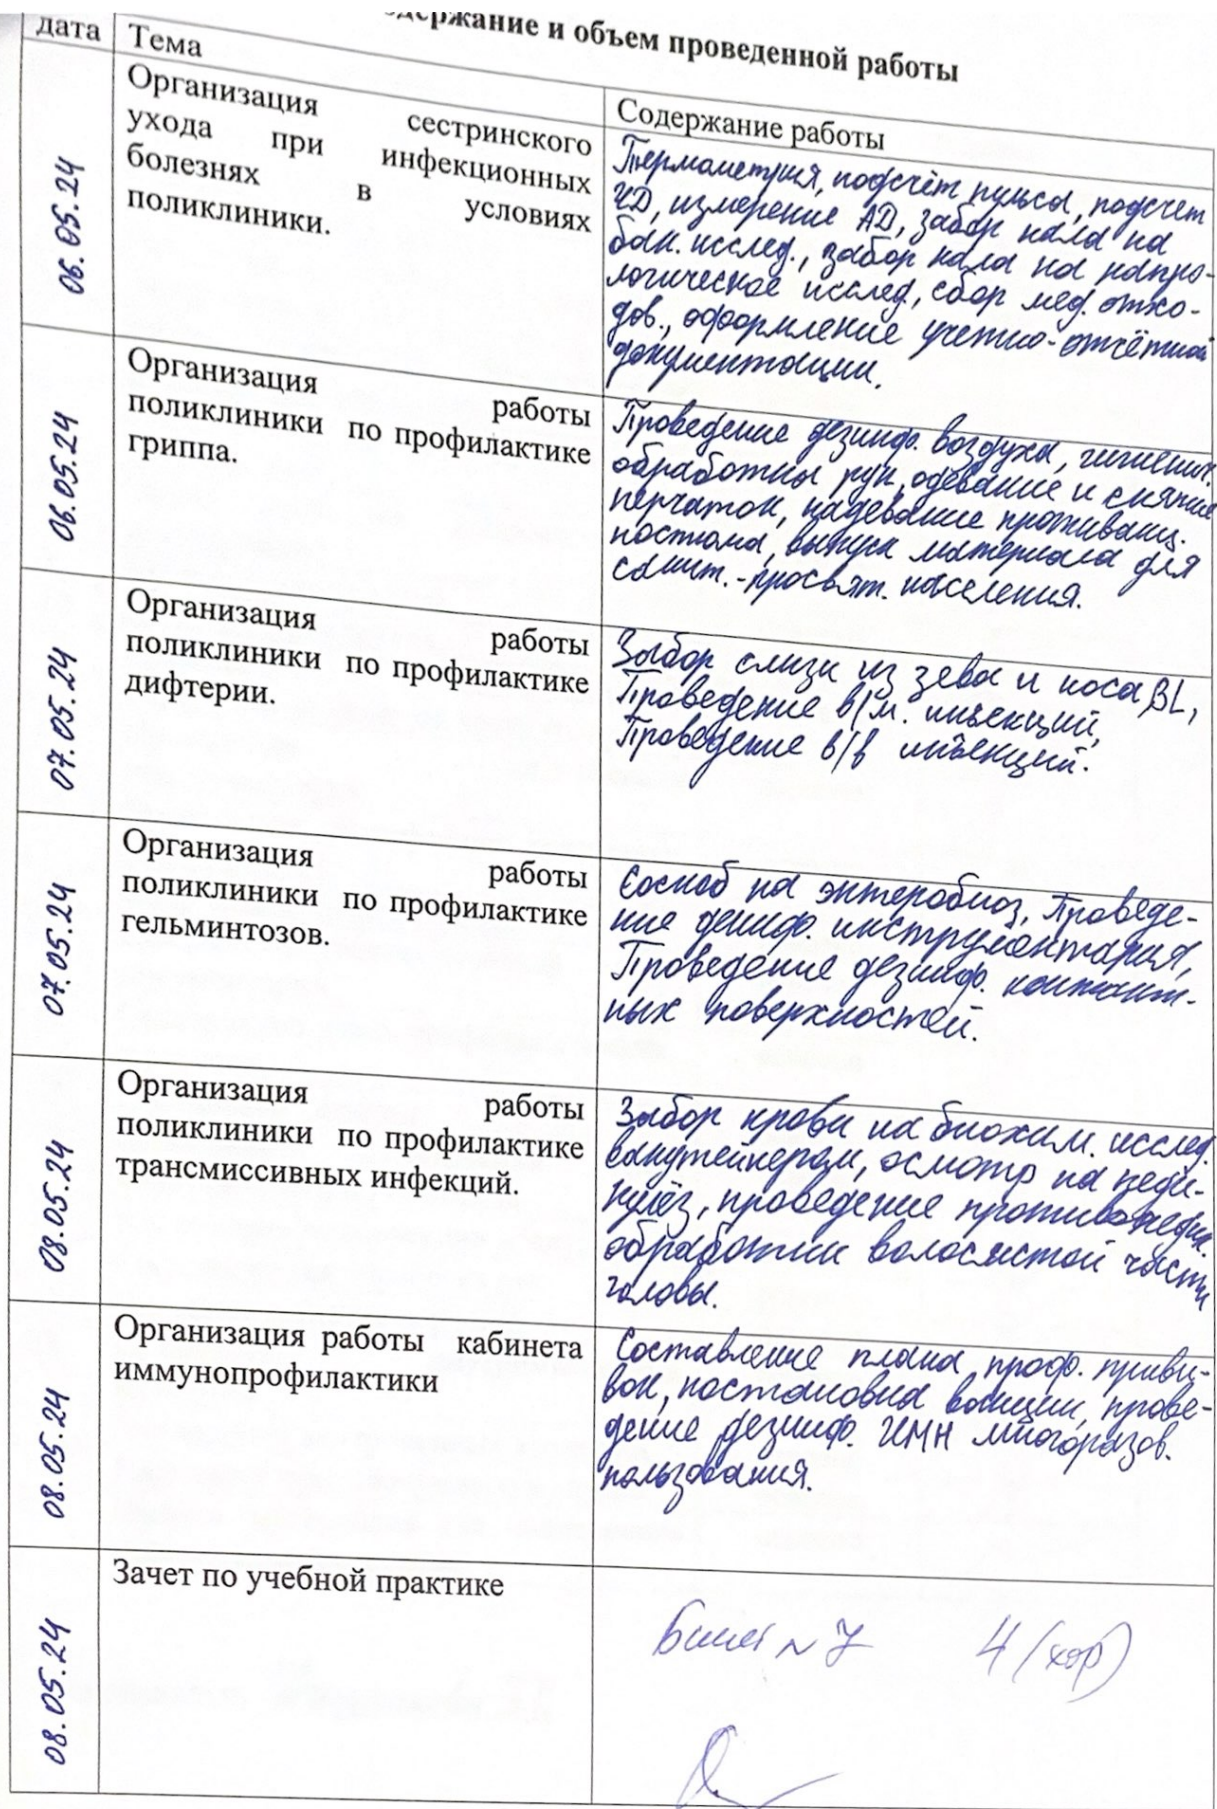 одержание и объем проведенной работы
дата Тема
Содержание работы
06.05.24
Организация сестринского
ухода при инфекционных
болезнях в условиях
поликлиники.
Термометрия, подсчёт пульса, подсчет
ЧД, измерение АД, забор кала на
бак. исслед., забор кала на капро-
логическое исслед, сбор мед. отхо-
дов., оформление учетно-отчётной
документации.
06.05.24
Организация работы
поликлиники по профилактике
гриппа.
Проведение дезинф. воздуха, гигиенич.
обработки рук, одевание и снятие
перчаток, надевание противочищ.
костюма, выпуск материала для
санит.-просвят. населения.
07.05.24
Организация работы
поликлиники по профилактике
дифтерии.
Забор слизи из зева и носа BL,
Проведение в/м. инъекций,
Проведение в/в инъекций.
07.05.24
Организация работы
поликлиники по профилактике
гельминтозов.
Соскоб на энтеробиоз, Проведе-
ние дезинф. инструментария,
Проведение дезинф. контакт-
ных поверхностей.
08.05.24
Организация работы
поликлиники по профилактике
трансмиссивных инфекций.
Забор крови на биохим. исслед.
вакутейнером, осмотр на педи-
кулёз, проведение противопедик.
обработки волосистой части
головы.
08.05.24
Организация работы кабинета
иммунопрофилактики
Составление плана проф. приви-
вок, постановка вакцин, прове-
дение дезинф. ИМН многоразов.
пользования.
08.05.24
Зачет по учебной практике
Билет N 7 4 (хор)